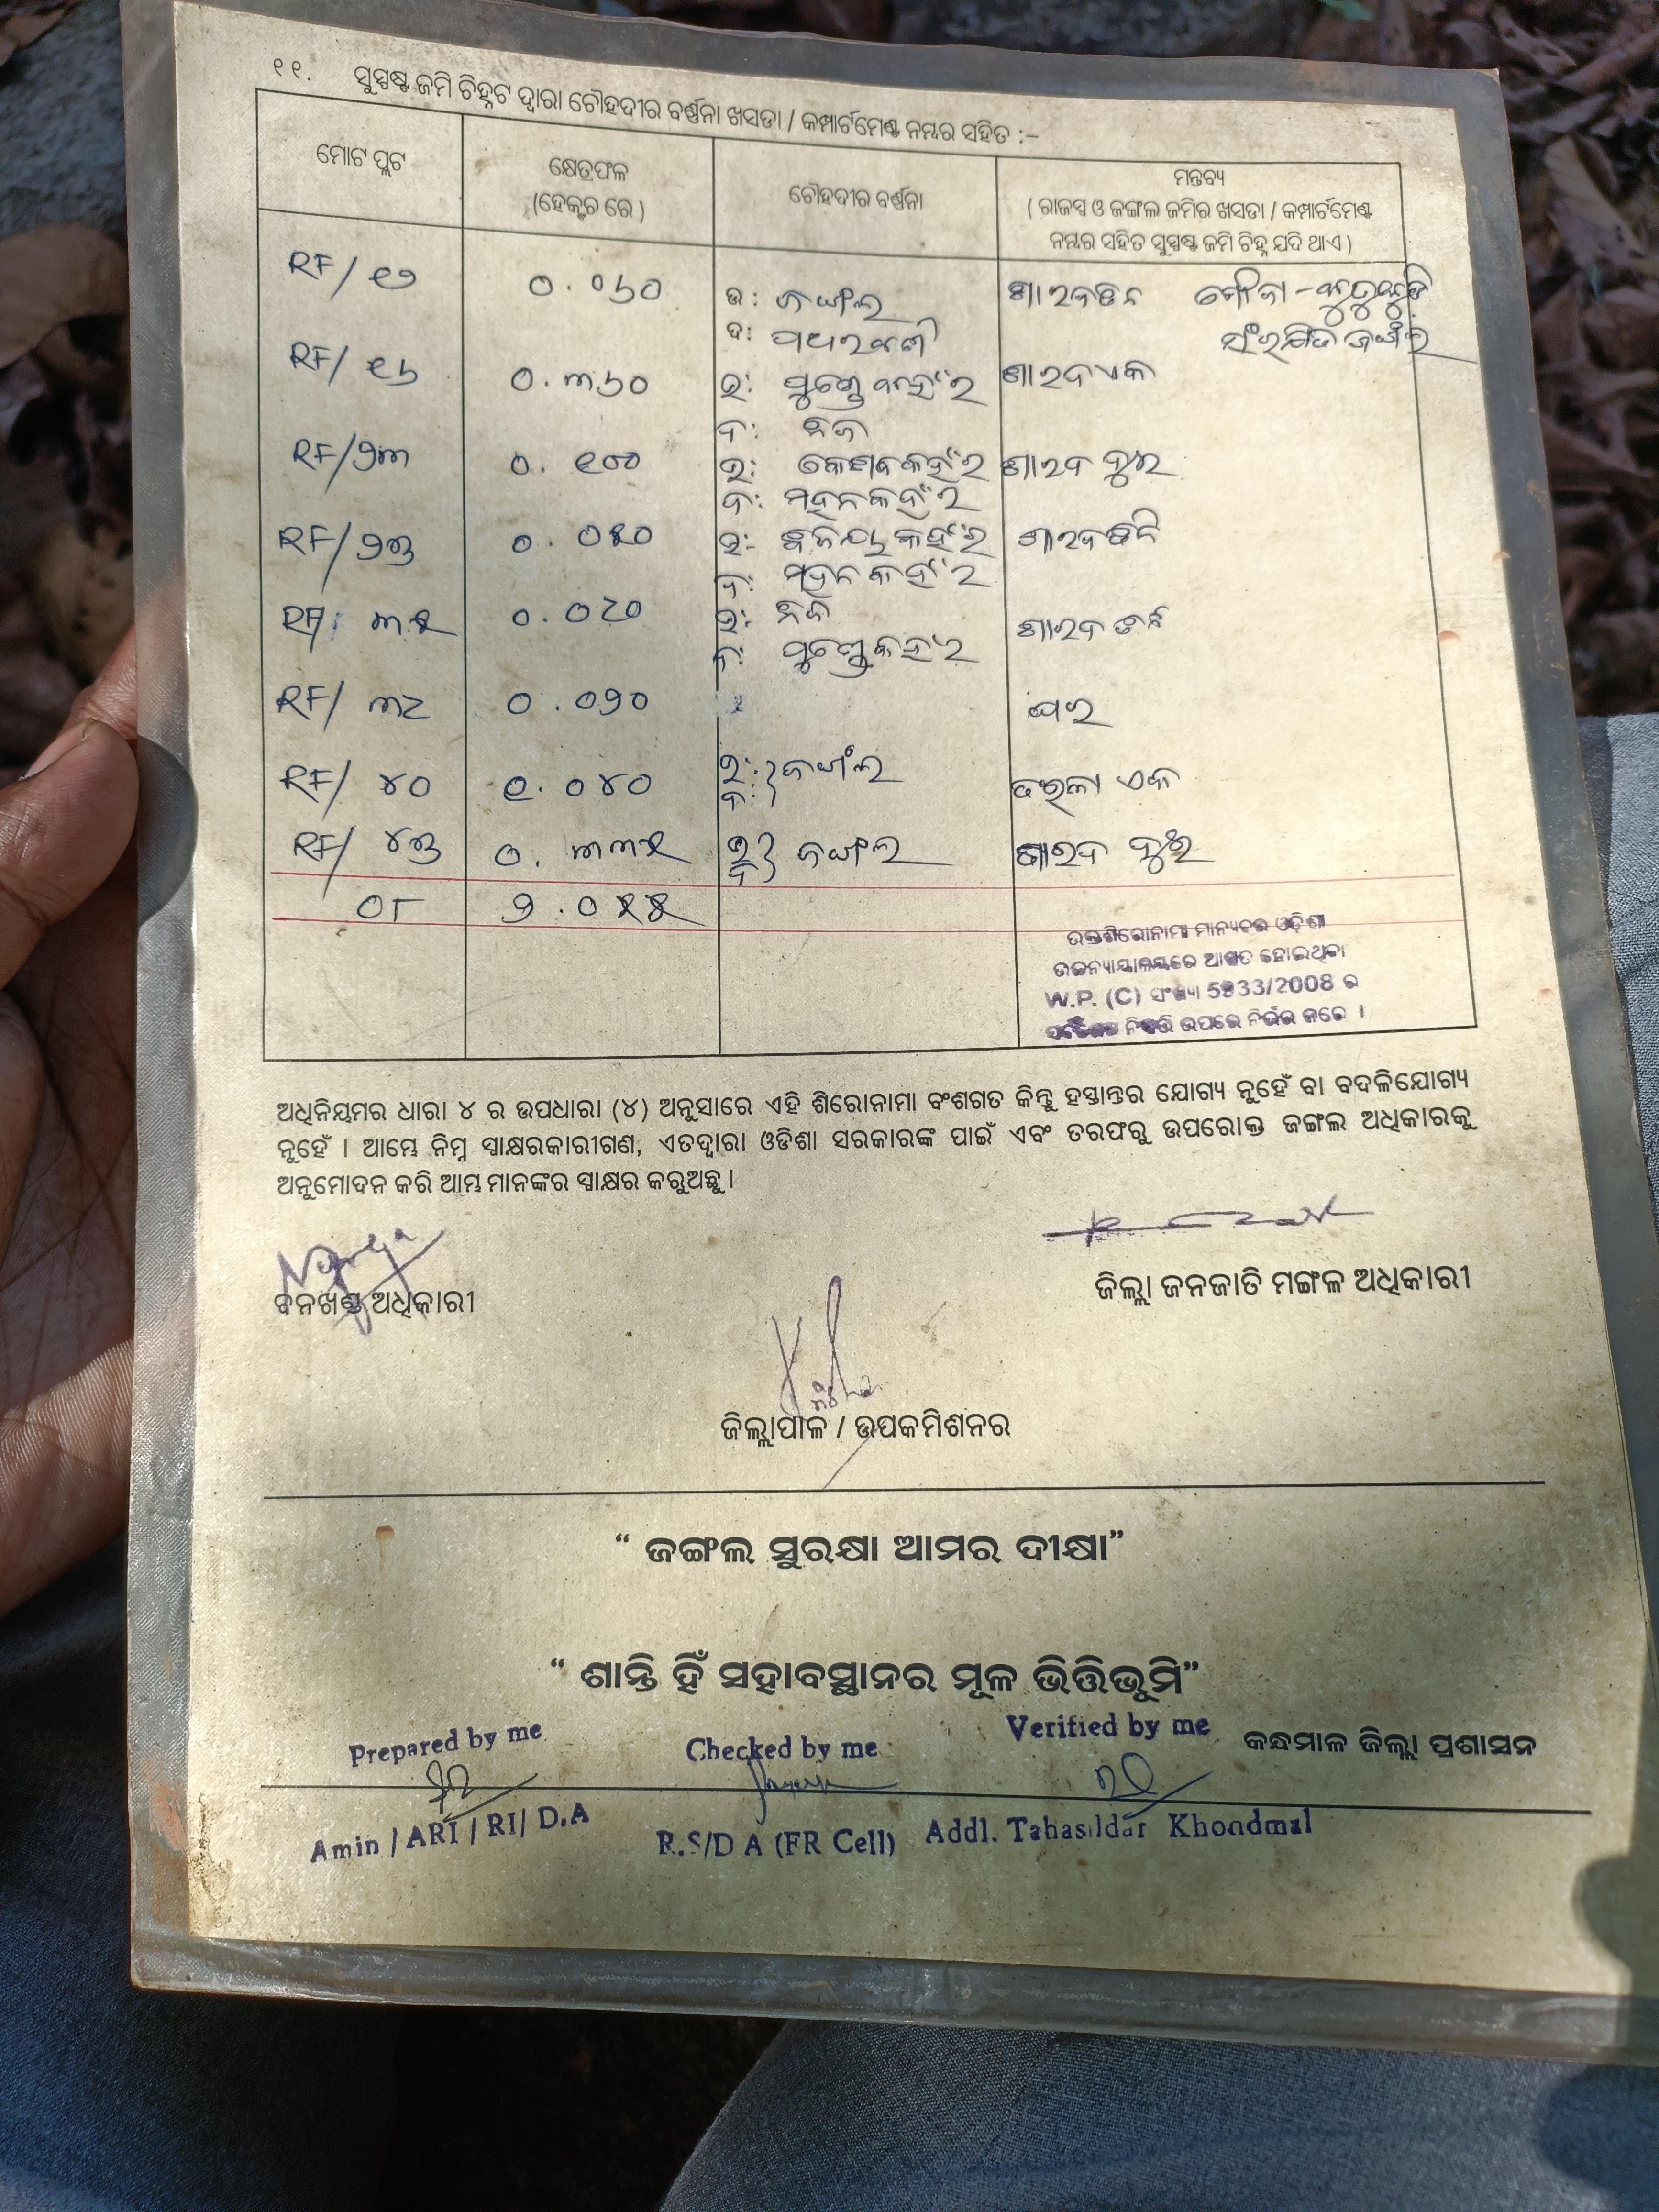 ୧୧. ସୁସ୍ପଷ୍ଟ ଜମି ଚିହ୍ନଟ ଦ୍ୱାରା ଚୌହଦୀର ବର୍ଣ୍ଣନା ଖସଡା / କମ୍ପାର୍ଟମେଣ୍ଟ ନମ୍ବର ସହିତ :–
ମୋଟ ପ୍ଲଟ
କ୍ଷେତ୍ରଫଳ
(ହେକ୍ଟର ରେ )
ଚୌହଦୀର ବର୍ଣ୍ଣନା
ମନ୍ତବ୍ୟ
( ରାଜସ୍ୱ ଓ ଜଙ୍ଗଲ ଜମିର ଖସଡା / କମ୍ପାର୍ଟମେଣ୍ଟ
ନମ୍ବର ସହିତ ସୁସ୍ପଷ୍ଟ ଜମି ଚିହ୍ନ ଯଦି ଥାଏ )
RF/ ୧୬ ୦.୦୬୦ ଉ: ଜଙ୍ଗଲ ଶାରଦତିନ ମୌଜା –
ଦ: ସଂରକ୍ଷିତ ଜଙ୍ଗଲ
RF/ ୦.୩୬୦ ଉ: କହଁର ଶାରଦ ଏକ
ଦ: ନିଜ
RF/୨୩ ୦.୧୦୦ ଉ: କେଶବ କହଁର ଶାରଦ ଦୁଇ
ଦ: ମହନ କହଁର
RF/୨୩ ୦.୦୫୦ ଉ:- କହଁର ଶାରଦତିନି
ଦ: ମହନ କହଁର
RF/ ୩୫ ୦.୦୮୦ ଉ: ନିଜ ଶାରଦ
ଦ: କହଁର
RF/ ୩୮ ୦.୦୨୦ ଘର
RF/ ୪୦ ୧.୦୪୦ ଉ: ଦ: ଜଙ୍ଗଲ ଏକ
RF/ ୪୩ ୦.୩୩୫ ଉ ଦ ଜଙ୍ଗଲ ଶାରଦ ଦୁଇ
୦୮ ୨.୦୫୫
ଉକ୍ତଶିରୋନାମା ମାନ୍ୟବର ଓଡ଼ିଶା
ଉଚ୍ଚନ୍ୟାୟାଳୟରେ ଆଗତ ହୋଇଥିବା
W.P. (C) ସଂଖ୍ୟା 5933/2008 ର
ଉପରେ ନିର୍ଭର କରେ ।
ଅଧିନିୟମର ଧାରା ୪ ର ଉପଧାରା (୪) ଅନୁସାରେ ଏହି ଶିରୋନାମା ବଂଶଗତ କିନ୍ତୁ ହସ୍ତାନ୍ତର ଯୋଗ୍ୟ ନୁହେଁ ବା ବଦଳିଯୋଗ୍ୟ
ନୁହେଁ । ଆମ୍ଭେ ନିମ୍ନ ସ୍ୱାକ୍ଷରକାରୀଗଣ, ଏତଦ୍ୱାରା ଓଡିଶା ସରକାରଙ୍କ ପାଇଁ ଏବଂ ତରଫରୁ ଉପରୋକ୍ତ ଜଙ୍ଗଲ ଅଧିକାରକୁ
ଅନୁମୋଦନ କରି ଆମ୍ଭ ମାନଙ୍କର ସ୍ୱାକ୍ଷର କରୁଅଛୁ ।
ବନଖଣ୍ଡ ଅଧିକାରୀ
ଜିଲ୍ଲା ଜନଜାତି ମଙ୍ଗଳ ଅଧିକାରୀ
ଜିଲ୍ଲାପାଳ / ଉପକମିଶନର
“ ଜଙ୍ଗଲ ସୁରକ୍ଷା ଆମର ଦୀକ୍ଷା”
“ ଶାନ୍ତି ହିଁ ସହାବସ୍ଥାନର ମୂଳ ଭିତ୍ତିଭୂମି”
Prepared by me Checked by me Verified by me କନ୍ଧମାଳ ଜିଲ୍ଲା ପ୍ରଶାସନ
Amin / ARI / RI/ D.A R.S/D A (FR Cell) Addl. Tahasildar Khondmal